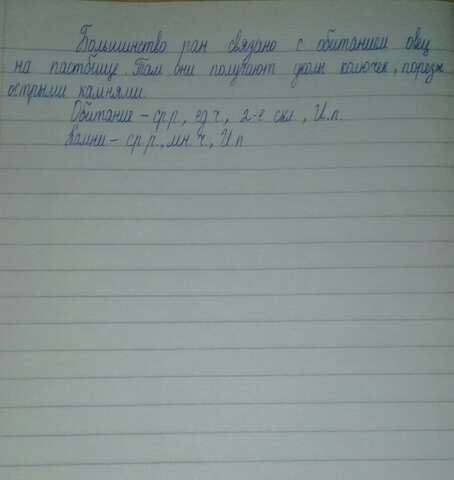 Большинство ран связано с обитанием овец
на пастбище. Там они получают уколы колючек, порезы
острыми камнями.
Обитание – ср.р., ед.ч., 2-е скл., И.п.
Камни – ср.р., мн.ч., И.п.